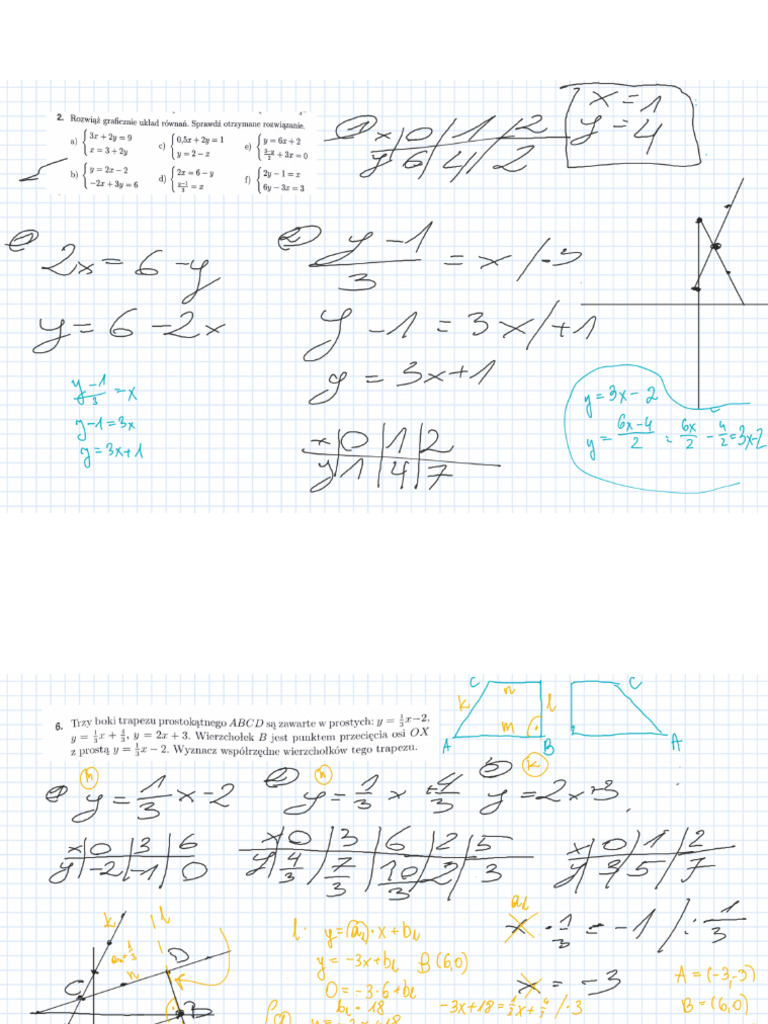 2. Rozwiąż graficznie układ równań. Sprawdź otrzymane rozwiązanie.
a) { 3x + 2y = 9
x = 3 + 2y
c) { 0,5x + 2y = 1
y = 2 − x
e) { y = 6x + 2
+ 3x = 0
b) { y = 2x − 2
−2x + 3y = 6
d) { 2x = 6 − y
y−1/3 = x
f) { 2y − 1 = x
6y − 3x = 3
1 x | 0 | 1 | 2
y | 6 | 4 | 2
x = 1
y = 4
2x = 6 − y
y = 6 − 2x
y−1/3 = x
y−1 = 3x
y = 3x+1
2 y − 1 / 3 = x /·3
y − 1 = 3x /+1
y = 3x+1
x | 0 | 1 | 2
y | 1 | 4 | 7
y = 3x − 2
y = 6x−4/2 = 6x/2 − 4/2 = 3x−2
6. Trzy boki trapezu prostokątnego ABCD są zawarte w prostych: y = 1/3x − 2,
y = 1/3x + 4/3, y = 2x + 3. Wierzchołek B jest punktem przecięcia osi OX
z prostą y = 1/3x − 2. Wyznacz współrzędne wierzchołków tego trapezu.
C n k l m A B
C A
1 y = 1/3 x − 2
x | 0 | 3 | 6
y | −2 | −1 | 0
2 n y = 1/3 x + 4/3
x | 0 | 3 | 6 | 2 | 5
y | 4/3 | 7/3 | 10/3 | 2 | 3
3 k y = 2x+3
x | 0 | 1 | 2
y | 3 | 5 | 7
k l D n C B
l: y = (a)·x + b
y = −3x + b B(6,0)
0 = −3·6 + b
b = 18
x · 1/3 = −1 /: 1/3
x = −3
−3x+18 = 1/3x + 4/3 /·3
A = (−3,−3)
B = (6,0)